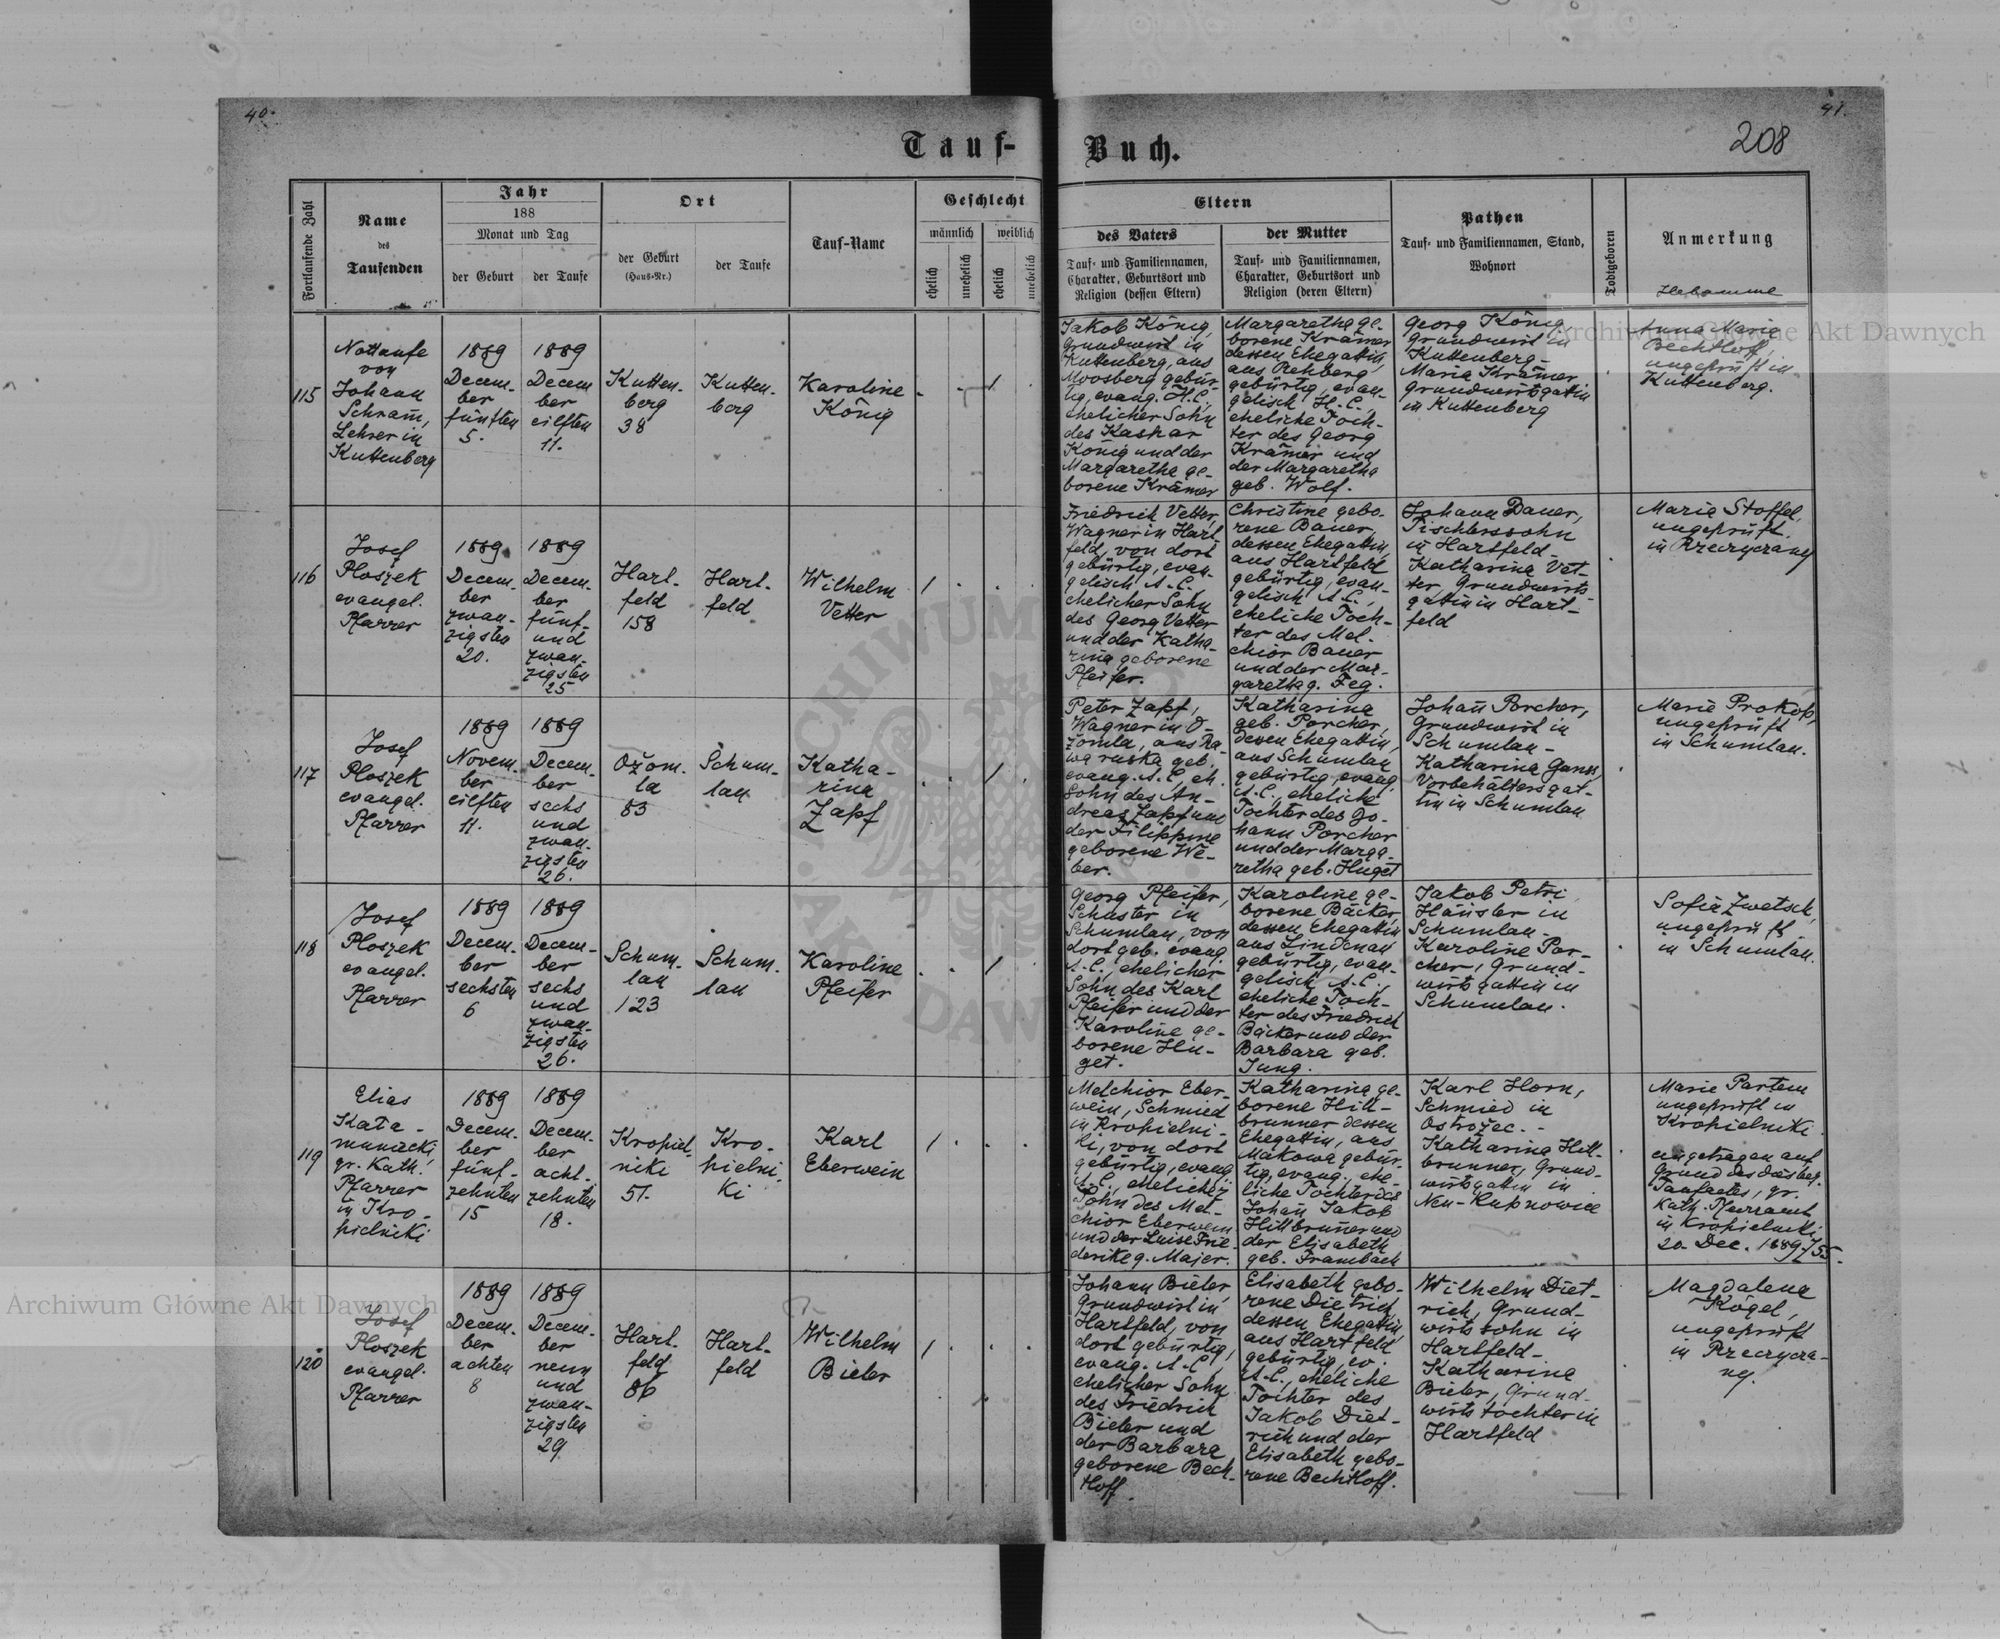 40.
41.
208
Tauf-Buch.
Fortlaufende Zahl
Name
des
Taufenden
Jahr
188
Monat und Tag
der Geburt
der Taufe
Ort
der Geburt
(Haus-Nr.)
der Taufe
Tauf-Name
Geschlecht
männlich
weiblich
ehelich
unehelich
ehelich
unehelich
Eltern
des Vaters
Tauf- und Familiennamen,
Charakter, Geburtsort und
Religion (dessen Eltern)
der Mutter
Tauf- und Familiennamen,
Charakter, Geburtsort und
Religion (deren Eltern)
Pathen
Tauf- und Familiennamen, Stand,
Wohnort
Todtgeboren
Anmerkung
Hebamme
115
Nottaufe
von
Johann
Schram̄,
Lehrer in
Kuttenberg
1889
Decem-
ber
fünften
5.
1889
Decem
ber
eilften
11.
Kutten-
berg
38
Kutten-
berg
Karoline
König
1
Jakob König,
Grundwirt in
Kuttenberg, aus
Moosberg gebür-
tig, evang. H.C.,
ehelicher Sohn
des Kaspar
König und der
Margaretha ge-
borene Krämer
Margaretha ge-
borene Krämer
dessen Ehegattin,
aus Rehberg
gebürtig, evan-
gelisch H.C.,
eheliche Toch-
ter des Georg
Krämer und
der Margaretha
geb. Wolf.
Georg König
Grundwirt in
Kuttenberg-
Maria Krämer
Grundwirtsgattin
in Kuttenberg
Anna Maria
Bechtloff,
ungeprüft in
Kuttenberg.
116
Josef
Ploszek
evangel.
Pfarrer
1889
Decem-
ber
zwan-
zigsten
20.
1889
Decem-
ber
fünf-
und
zwan-
zigsten
25
Hart-
feld
158
Hart-
feld
Wilhelm
Vetter
1
Friedrich Vetter,
Wagner in Hart
feld, von dort
gebürtig, evan-
gelisch A.C.
ehelicher Sohn
des Georg Vetter
und der Katha-
rina geborene
Pfeifer.
Christine gebo-
rene Bauer,
dessen Ehegattin,
aus Hartfeld
gebürtig, evan-
gelisch A.C.,
eheliche Toch-
ter des Mel-
chior Bauer
und der Mar-
garetha g. Feg.
Johann Bauer,
Tischlerssohn
in Hartfeld-
Katharina Vet-
ter, Grundwirts-
gattin in Hart-
feld
Maria Stoffel,
ungeprüft
in Rzeczyczany
117
Josef
Ploszek
evangel.
Pfarrer
1889
Novem-
ber
eilften
11.
1889
Decem-
ber
sechs
und
zwan-
zigsten
26.
Ožom-
la
83
Schum-
lau
Katha-
rina
Zapf
1
Peter Zapf,
Wagner in O-
zomla, aus Ra-
wa ruska geb.
evang. A.C. eh.
Sohn des An-
dreas Zapf und
der Filippine
geborene We-
ber.
Katharina
geb. Porcher,
dessen Ehegattin,
aus Schumlau
gebürtig, evang.
A.C., eheliche
Tochter des Jo-
hann Porcher
und der Marga-
retha geb. Huget
Johan̄ Porcher,
Grundwirt in
Schumlau-
Katharina Ganss,
Vorbehältersgat-
tin in Schumlau
Marie Prokop,
ungeprüft
in Schumlau.
118
Josef
Ploszek
evangel.
Pfarrer
1889
Decem-
ber
sechsten
6
1889
Decem-
ber
sechs
und
zwan-
zigsten
26.
Schum-
lau
123
Schum-
lau
Karoline
Pfeifer
1
Georg Pfeifer,
Schuster in
Schumlau, von
dort geb. evang.
A.C., ehelicher
Sohn des Karl
Pfeifer und der
Karoline ge-
borene Hu-
get.
Karoline ge-
borene Bäcker,
dessen Ehegattin
aus Lindenau
gebürtig, evan-
gelisch A.C.,
eheliche Toch-
ter des Friedrich
Bäcker und der
Barbara geb.
Jung.
Jakob Petri
Häusler in
Schumlau-
Karoline Por-
cher, Grund-
wirtsgattin in
Schumlau.
Sofia Zwetsch,
ungeprüft
in Schumlau.
119
Elias
Kata-
munacki,
gr. Kath.
Pfarrer
in Kro-
pielniki
1889
Decem-
ber
fünf-
zehnten
15
1889
Decem-
ber
acht-
zehnten
18.
Kropiel-
niki
51.
Kro-
pielni-
Ki
Karl
Eberwein
1
Melchior Eber-
wein, Schmied
in Kropielni-
ki, von dort
gebürtig, evang.
A.C., ehelicher
Sohn des Mel-
chior Eberwein
und der Luise Frie-
derike g. Majer.
Katharina ge-
borene Hill-
brunner dessen
Ehegattin, aus
Makowa gebür-
tig, evang. ehe-
liche Tochter des
Johan̄ Jakob
Hillbrun̄er und
der Elisabeth
geb. Frambach
Karl Horn,
Schmied in
Ostrožec.-
Katharina Hill-
brunner, Grund-
wirtsgattin in
Neu-Kupnowice
Marie Partem
ungeprüft in
Kropielniki
eingetragen auf
Grund des diesbez.
Taufactes, gr.
Kath. Pfarramt
in Kropielniki,
20. Dec. 1889/55.
120
Josef
Ploszek
evangel.
Pfarrer
1889
Decem-
ber
achten
8
1889
Decem-
ber
neun
und
zwan-
zigsten
29
Hart-
feld
86
Hart-
feld
Wilhelm
Bieler
1
Johann Bieler
Grundwirt in
Hartfeld, von
dort gebürtig,
evang. A.C.,
ehelicher Sohn
des Friedrich
Bieler und
der Barbara
geborene Bech-
tloff.
Elisabeth gebo-
rene Dietrich,
dessen Ehegattin,
aus Hartfeld
gebürtig, ev.
A.C., eheliche
Tochter des
Jakob Diet-
rich und der
Elisabeth gebo-
rene Bechtloff.
Wilhelm Diet-
rich, Grund-
wirtssohn in
Hartfeld-
Katharina
Bieler, Grund-
wirtstochter in
Hartfeld
Magdalena
Kögel,
ungeprüft
in Rzeczycza-
ny.
Archiwum Główne Akt Dawnych
Archiwum Główne Akt Dawnych
ARCHIWUM
AKT DAW